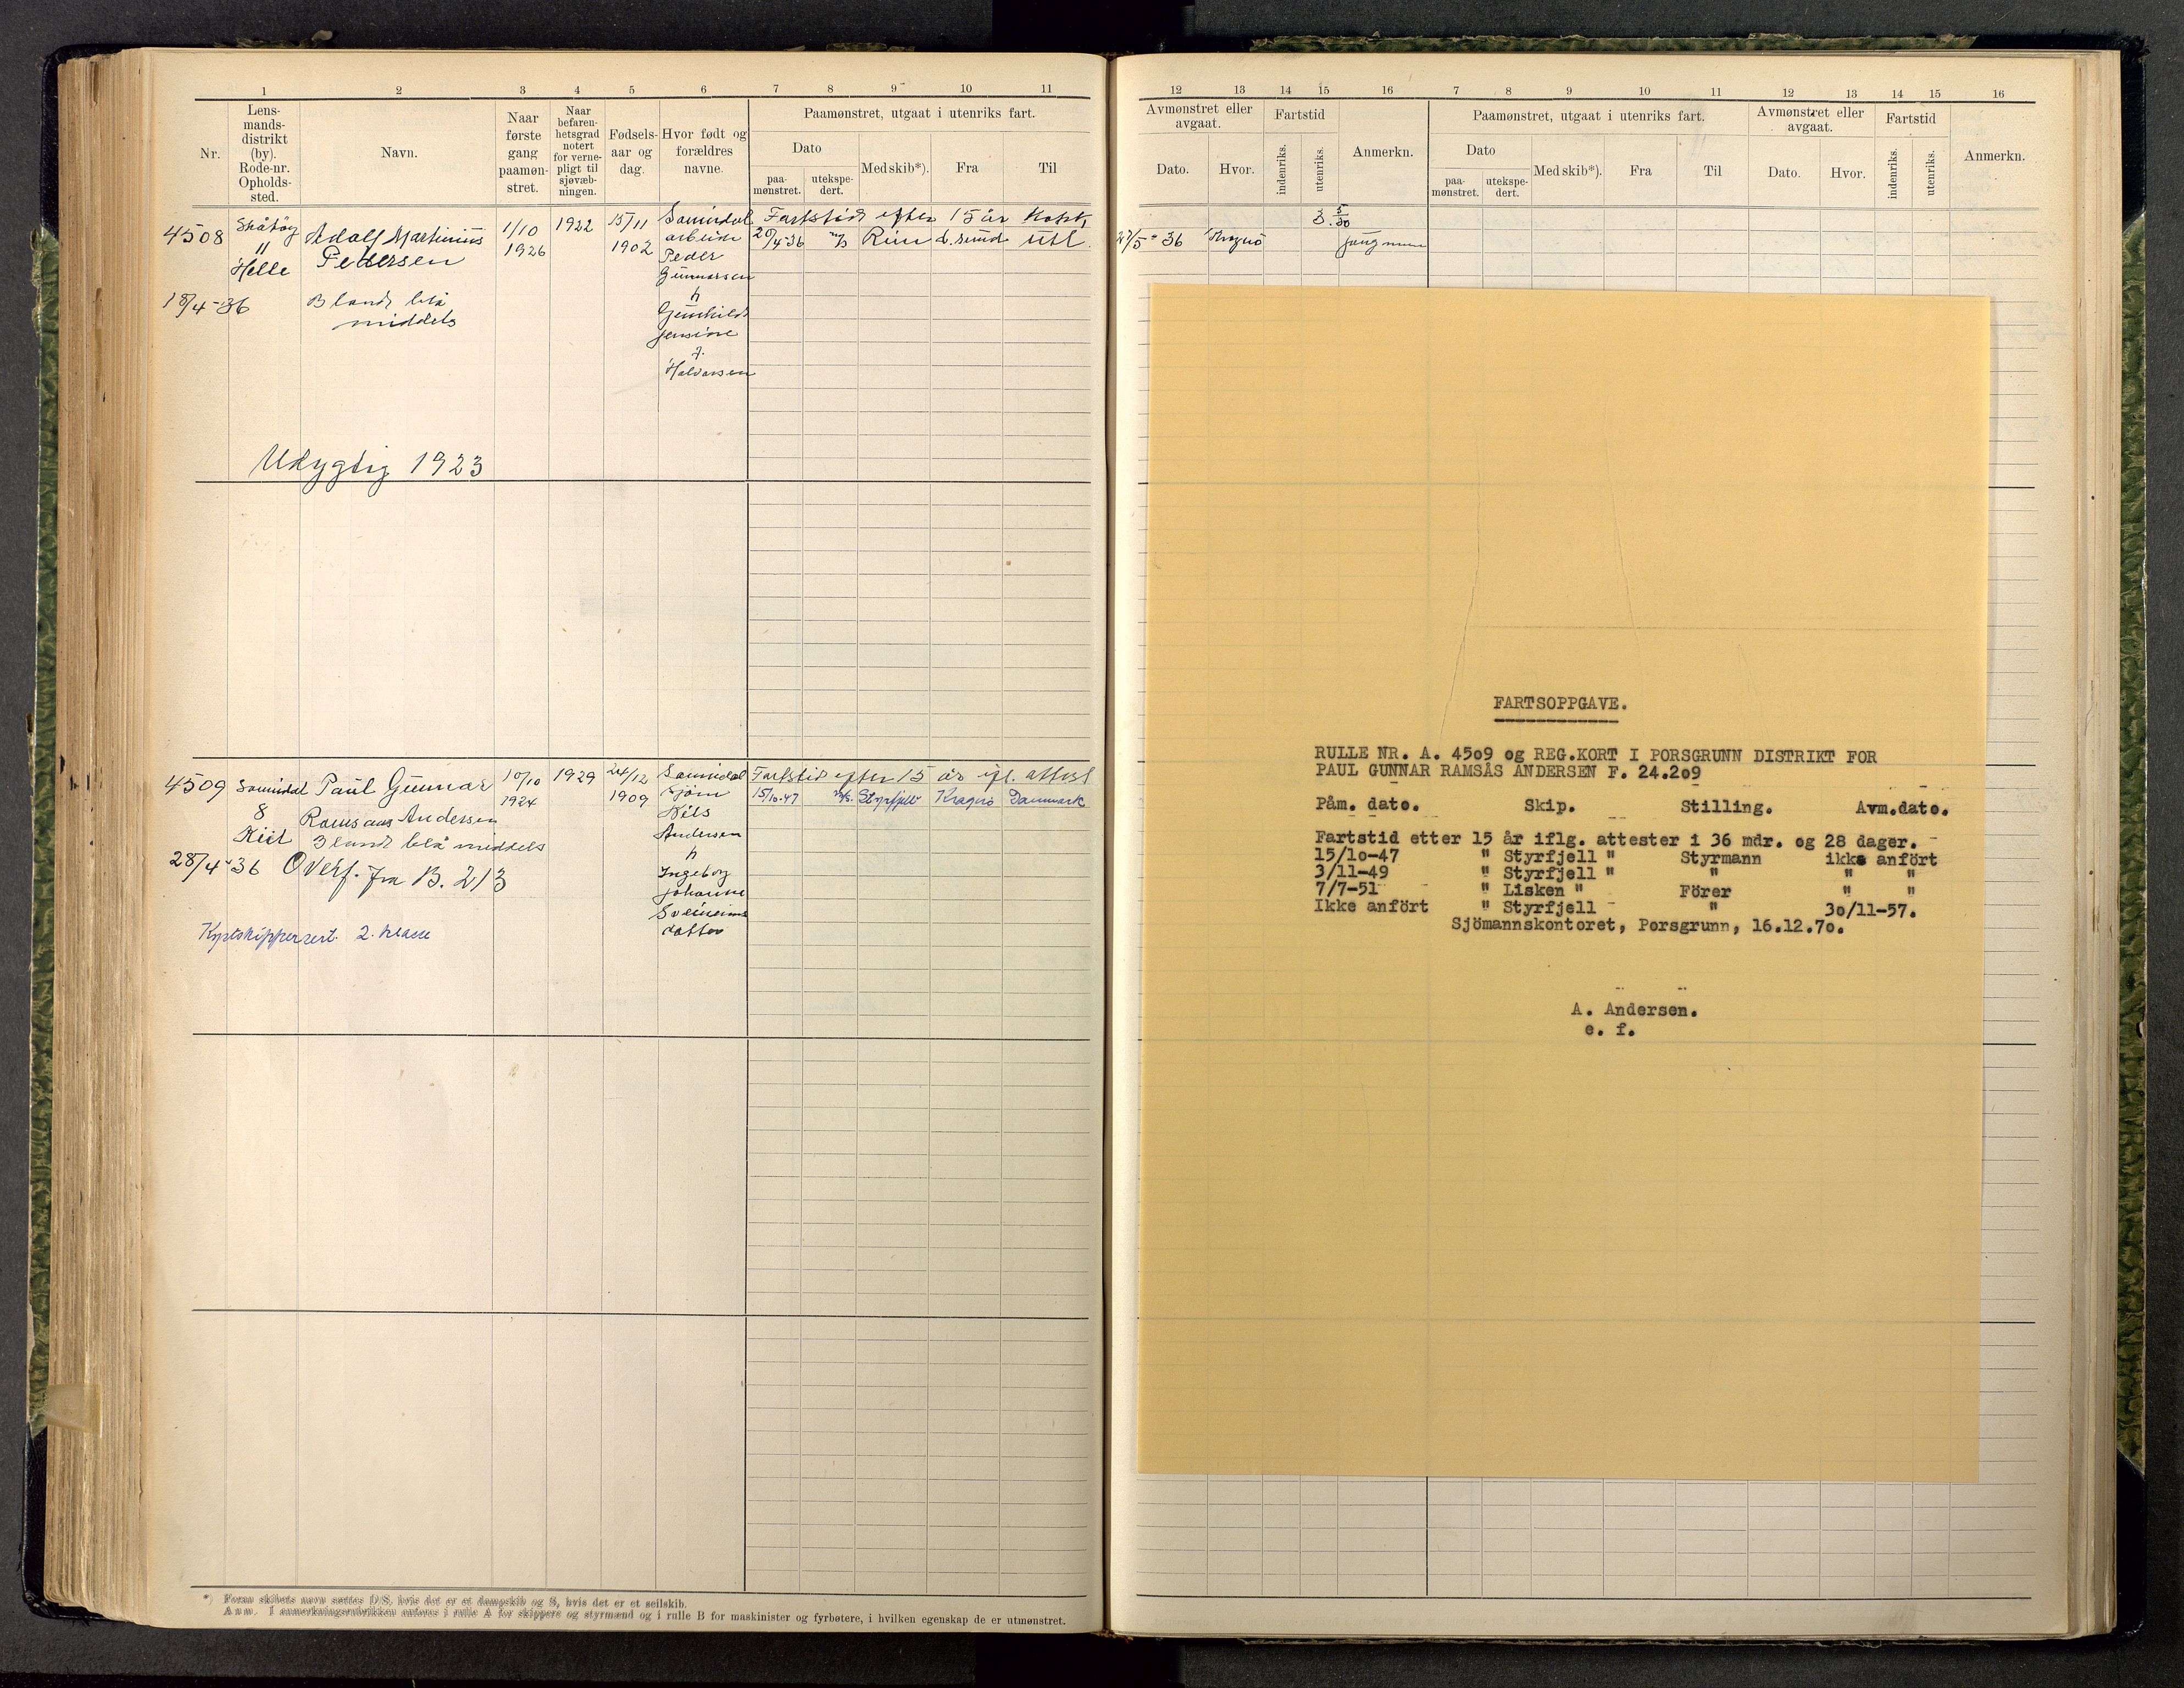 1 2 3 4 5 6 7 8 9 10 11
Nr.
Lens-
mands-
distrikt
(by).
Rode-nr.
Opholds-
sted.
Navn.
Naar
første
gang
paamøn-
stret.
Naar
befaren-
hetsgrad
notert
for verne-
pligt til
sjøvæb-
ningen.
Fødsels-
aar og
dag.
Hvor født og
forældres
navne.
Paamønstret, utgaat i utenriks fart.
Dato
paa-
mønstret.
utekspe-
dert.
Med skib*).
Fra
Til
4508
Skåtøy
"
Helle
18/4-36
Adolf Martinius
Pedersen
Blond blå
middels
1/10
1926
1922
15/11
1902
Sannidal
arbeider
Peder
Gunnarsen
h
Gunhild
Jensine
f.
Halvorsen
Fartstid efter 15 år
20/4-36 m/s
utl.
Udygtig 1923
4509
Sannidal
8
Kiil
28/4-36
Paul Gunnar
Ramsaas Andersen
Blond blå middels
Overf. fra B. 213
Kystskippersert. 2. klasse
10/10
1924
1929
24/12
1909
Sannidal
Sjøm
Nils
Andersen
h
Ingeborg
Johanne
Sveinsins
datter
Fartstid efter 15 år ifl. attest
15/10-47 m/s. Styrfjell Kragerø Danmark
*) Foran skibets navn sættes D/S, hvis det er et dampskib og S, hvis det er et seilskib.
Anm. I anmerkningsrubrikken anføres i rulle A for skippere og styrmænd og i rulle B for maskinister og fyrbøtere, i hvilken egenskap de er utmønstret.
12 13 14 15 16 7 8 9 10 11 12 13 14 15 16
Avmønstret eller
avgaat.
Dato.
Hvor.
Fartstid
indenriks.
utenriks.
Anmerkn.
Paamønstret, utgaat i utenriks fart.
Dato
paa-
mønstret.
utekspe-
dert.
Med skib*).
Fra
Til
Avmønstret eller
avgaat.
Dato.
Hvor.
Fartstid
indenriks.
utenriks.
Anmerkn.
3 5/30
27/5-36 Kragerø jungmann
FARTSOPPGAVE.
RULLE NR. A. 45o9 og REG.KORT I PORSGRUNN DISTRIKT FOR
PAUL GUNNAR RAMSÅS ANDERSEN F. 24.2o9
Påm. dato. Skip. Stilling. Avm.dato.
Fartstid etter 15 år iflg. attester i 36 mdr. og 28 dager.
15/1o-47 " Styrfjell " Styrmann ikke anfört
3/11-49 " Styrfjell " " " "
7/7-51 " Lisken " Förer " "
Ikke anfört " Styrfjell " 3o/11-57.
Sjömannskontoret, Porsgrunn, 16.12.7o.
A. Andersen.
e. f.